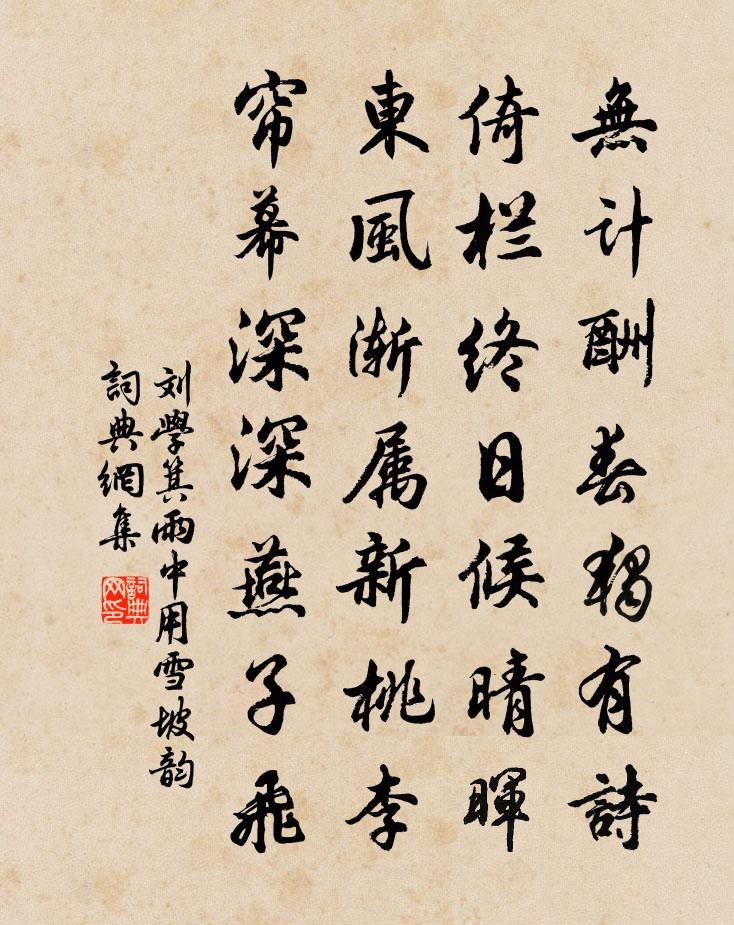 無計酬春獨有詩
倚栏終日候晴暉
東風漸属新桃李
帘幕深深燕子飛
刘學箕雨中用雪坡韵
詞典網集
詞典
网印